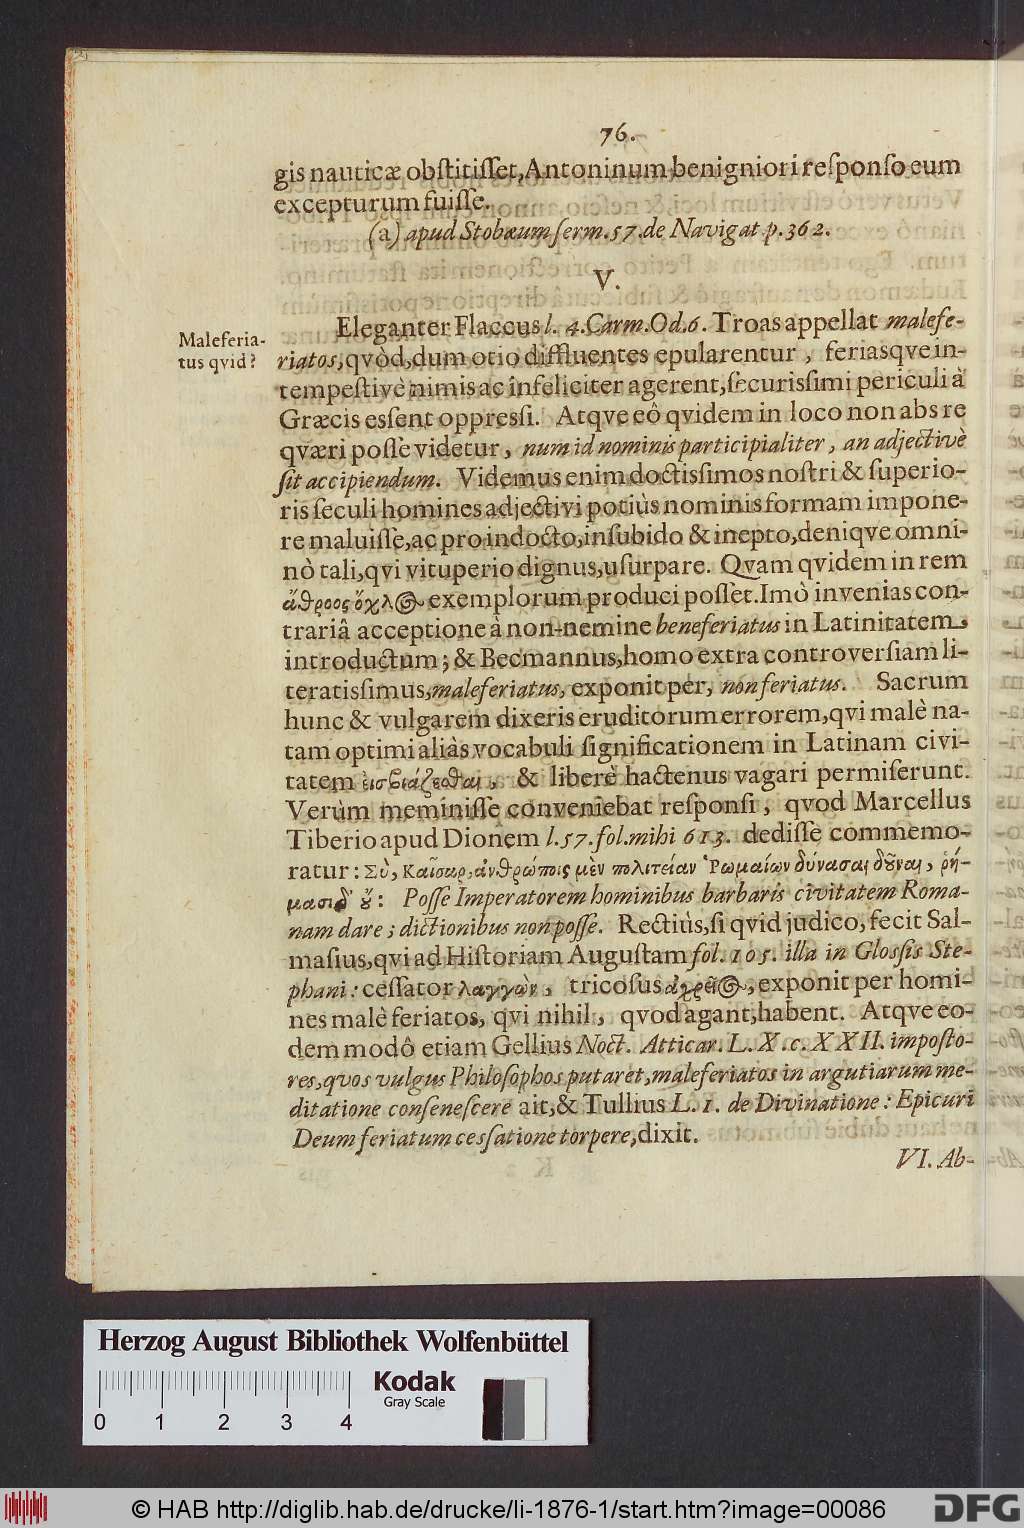 76.
gis nauticæ obstitisset, Antoninum benigniori responso eum
excepturum fuisse.
(a) apud Stobæum serm. 57. de Navigat. p. 362.
V.
Eleganter Flaccus l. 4. Carm. Od. 6. Troas appellat malefe-
Maleferia-
tus qvid?
riatos, qvòd, dum otio diffluentes epularentur, feriasqve in-
tempestivè nimis ac infeliciter agerent, securissimi periculi à
Græcis essent oppressi. Atqve eô qvidem in loco non abs re
qværi posse videtur, num id nominis participialiter, an adjectivè
sit accipiendum. Videmus enim doctissimos nostri & superio-
ris seculi homines adjectivi potiùs nominis formam impone-
re maluisse, ac pro indocto, insubido & inepto, deniqve omni-
nò tali, qvi vituperio dignus, usurpare. Qvam qvidem in rem
ἄθροος ὄχλος exemplorum produci posset. Imò invenias con-
trariâ acceptione à non-nemine beneferiatus in Latinitatem
introductum; & Becmannus, homo extra controversiam li-
teratissimus, maleferiatus, exponit per, non feriatus. Sacrum
hunc & vulgarem dixeris eruditorum errorem, qvi malè na-
tam optimi aliàs vocabuli significationem in Latinam civi-
tatem εἰσβιάζεσθαι, & liberè hactenus vagari permiserunt.
Verùm meminisse conveniebat responsi, qvod Marcellus
Tiberio apud Dionem l. 57. fol. mihi 613. dedisse commemo-
ratur: Σὺ, Καῖσαρ, ἀνθρώποις μὲν πολιτείαν Ῥωμαίων δύνασαι δοῦναι, ῥή-
μασι δ' οὔ: Posse Imperatorem hominibus barbaris civitatem Roma-
nam dare; dictionibus non posse. Rectiùs, si qvid judico, fecit Sal-
masius, qvi ad Historiam Augustam fol. 105. illa in Glossis Ste-
phani: cessator λαγγὼν, tricosus ἀχρεῖος, exponit per homi-
nes malè feriatos, qvi nihil, qvod agant, habent. Atqve eo-
dem modô etiam Gellius Noct. Atticar. L. X. c. XXII. imposto-
res, qvos vulgus Philosophos putaret, maleferiatos in argutiarum me-
ditatione consenescere ait, & Tullius L. 1. de Divinatione: Epicuri
Deum feriatum cessatione torpere, dixit.
VI. Ab-
Herzog August Bibliothek Wolfenbüttel
Kodak
Gray Scale
0 1 2 3 4
© HAB http://diglib.hab.de/drucke/li-1876-1/start.htm?image=00086
DFG